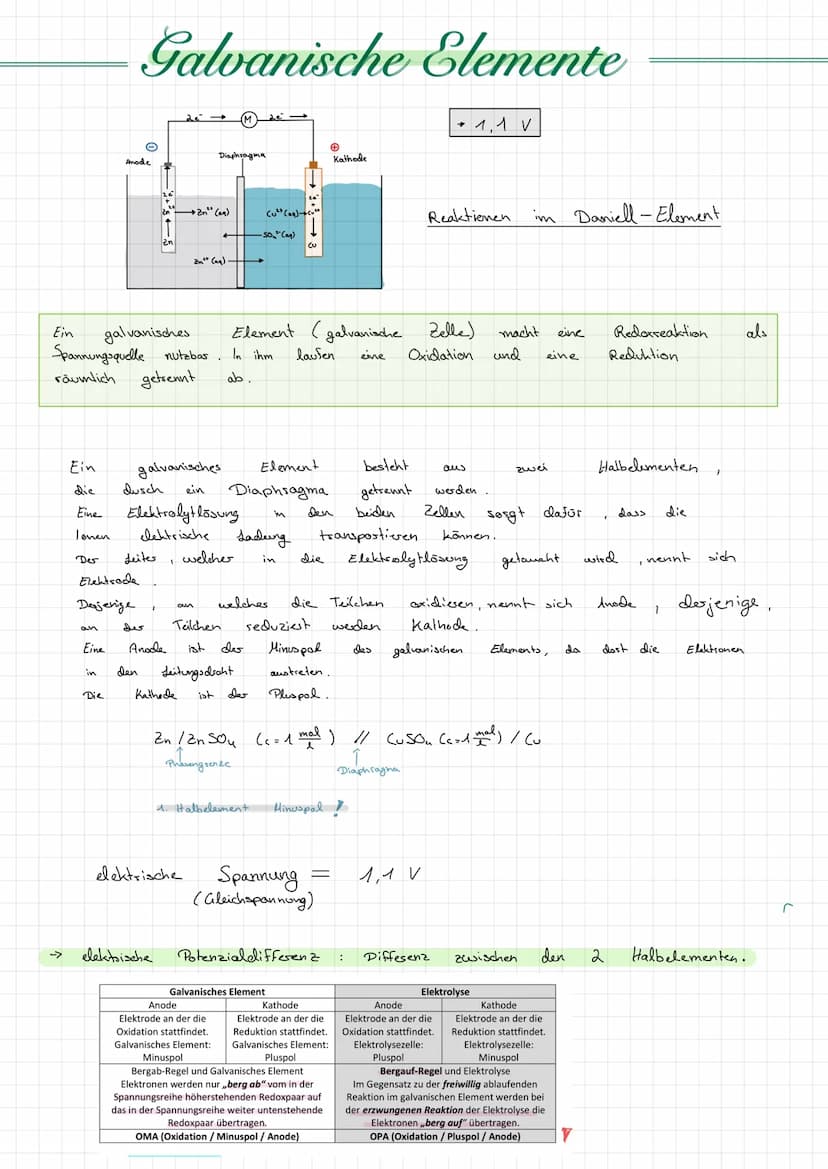 Galvanische Elemente
2e⁻ → M 2e⁻ →
→ 1,1 V
⊖ ⊕
Anode Diaphragma Kathode
2e⁻ + Zn²⁺ → Zn²⁺ (aq)
Cu²⁺ (aq) → Cu²⁺ + 2e⁻
SO₄²⁻ (aq)
Zn Cu
Zn²⁺ (aq)
Reaktionen im Daniell-Element
Ein galvanisches Element (galvanische Zelle) macht eine Redoxreaktion als
Spannungsquelle nutzbar. In ihm laufen eine Oxidation und eine Reduktion
räumlich getrennt ab.
Ein galvanisches Element besteht aus zwei Halbelementen,
die durch ein Diaphragma getrennt werden.
Eine Elektrolytlösung in den beiden Zellen sorgt dafür, dass die
Ionen elektrische Ladung transportieren können.
Der Leiter, welcher in die Elektrolytlösung getaucht wird, nennt sich
Elektrode.
Derjenige, an welches die Teilchen oxidiesen, nennt sich Anode, derjenige,
an der Teilchen reduziert werden Kathode.
Eine Anode ist der Minuspol des galvanischen Elements, da dort die Elektronen
in den Leitungsdraht austreten.
Die Kathode ist der Pluspol.
Zn / ZnSO₄ (c = 1 mol/l) // CuSO₄ (c = 1 mol/l) / Cu
Phasengrenze Diaphragma
1. Halbelement Minuspol!
elektrische Spannung = 1,1 V
(Gleichspannung)
→ elektrische Potenzialdifferenz : Differenz zwischen den 2 Halbelementen.
Galvanisches Element Elektrolyse
Anode Kathode Anode Kathode
Elektrode an der die Elektrode an der die Elektrode an der die Elektrode an der die
Oxidation stattfindet. Reduktion stattfindet. Oxidation stattfindet. Reduktion stattfindet.
Galvanisches Element: Galvanisches Element: Elektrolysezelle: Elektrolysezelle:
Minuspol Pluspol Pluspol Minuspol
Bergab-Regel und Galvanisches Element Bergauf-Regel und Elektrolyse
Elektronen werden nur „berg ab“ vom in der Im Gegensatz zu der freiwillig ablaufenden
Spannungsreihe höherstehenden Redoxpaar auf Reaktion im galvanischen Element werden bei
das in der Spannungsreihe weiter untenstehende der erzwungenen Reaktion der Elektrolyse die
Redoxpaar übertragen. Elektronen „berg auf“ übertragen.
OMA (Oxidation / Minuspol / Anode) OPA (Oxidation / Pluspol / Anode)